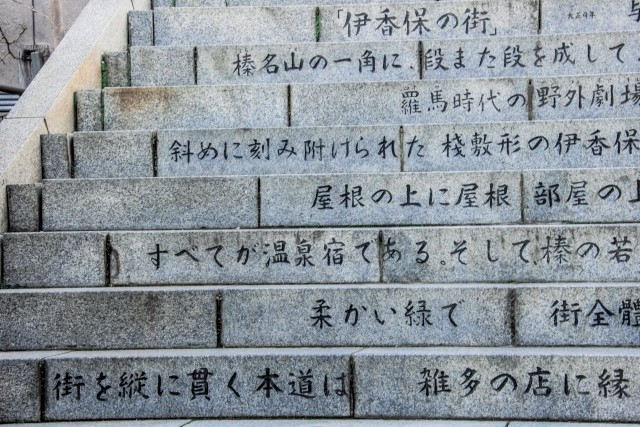 「伊香保の街」 大正4年
榛名山の一角に、段また段を成して、
羅馬時代の野外劇場
斜めに刻み附けられた 棧敷形の伊香保
屋根の上に屋根、部屋の上
すべてが温泉宿である。そして榛の若
柔かい緑で 街全體
街を縦に貫く本道は 雑多の店に縁